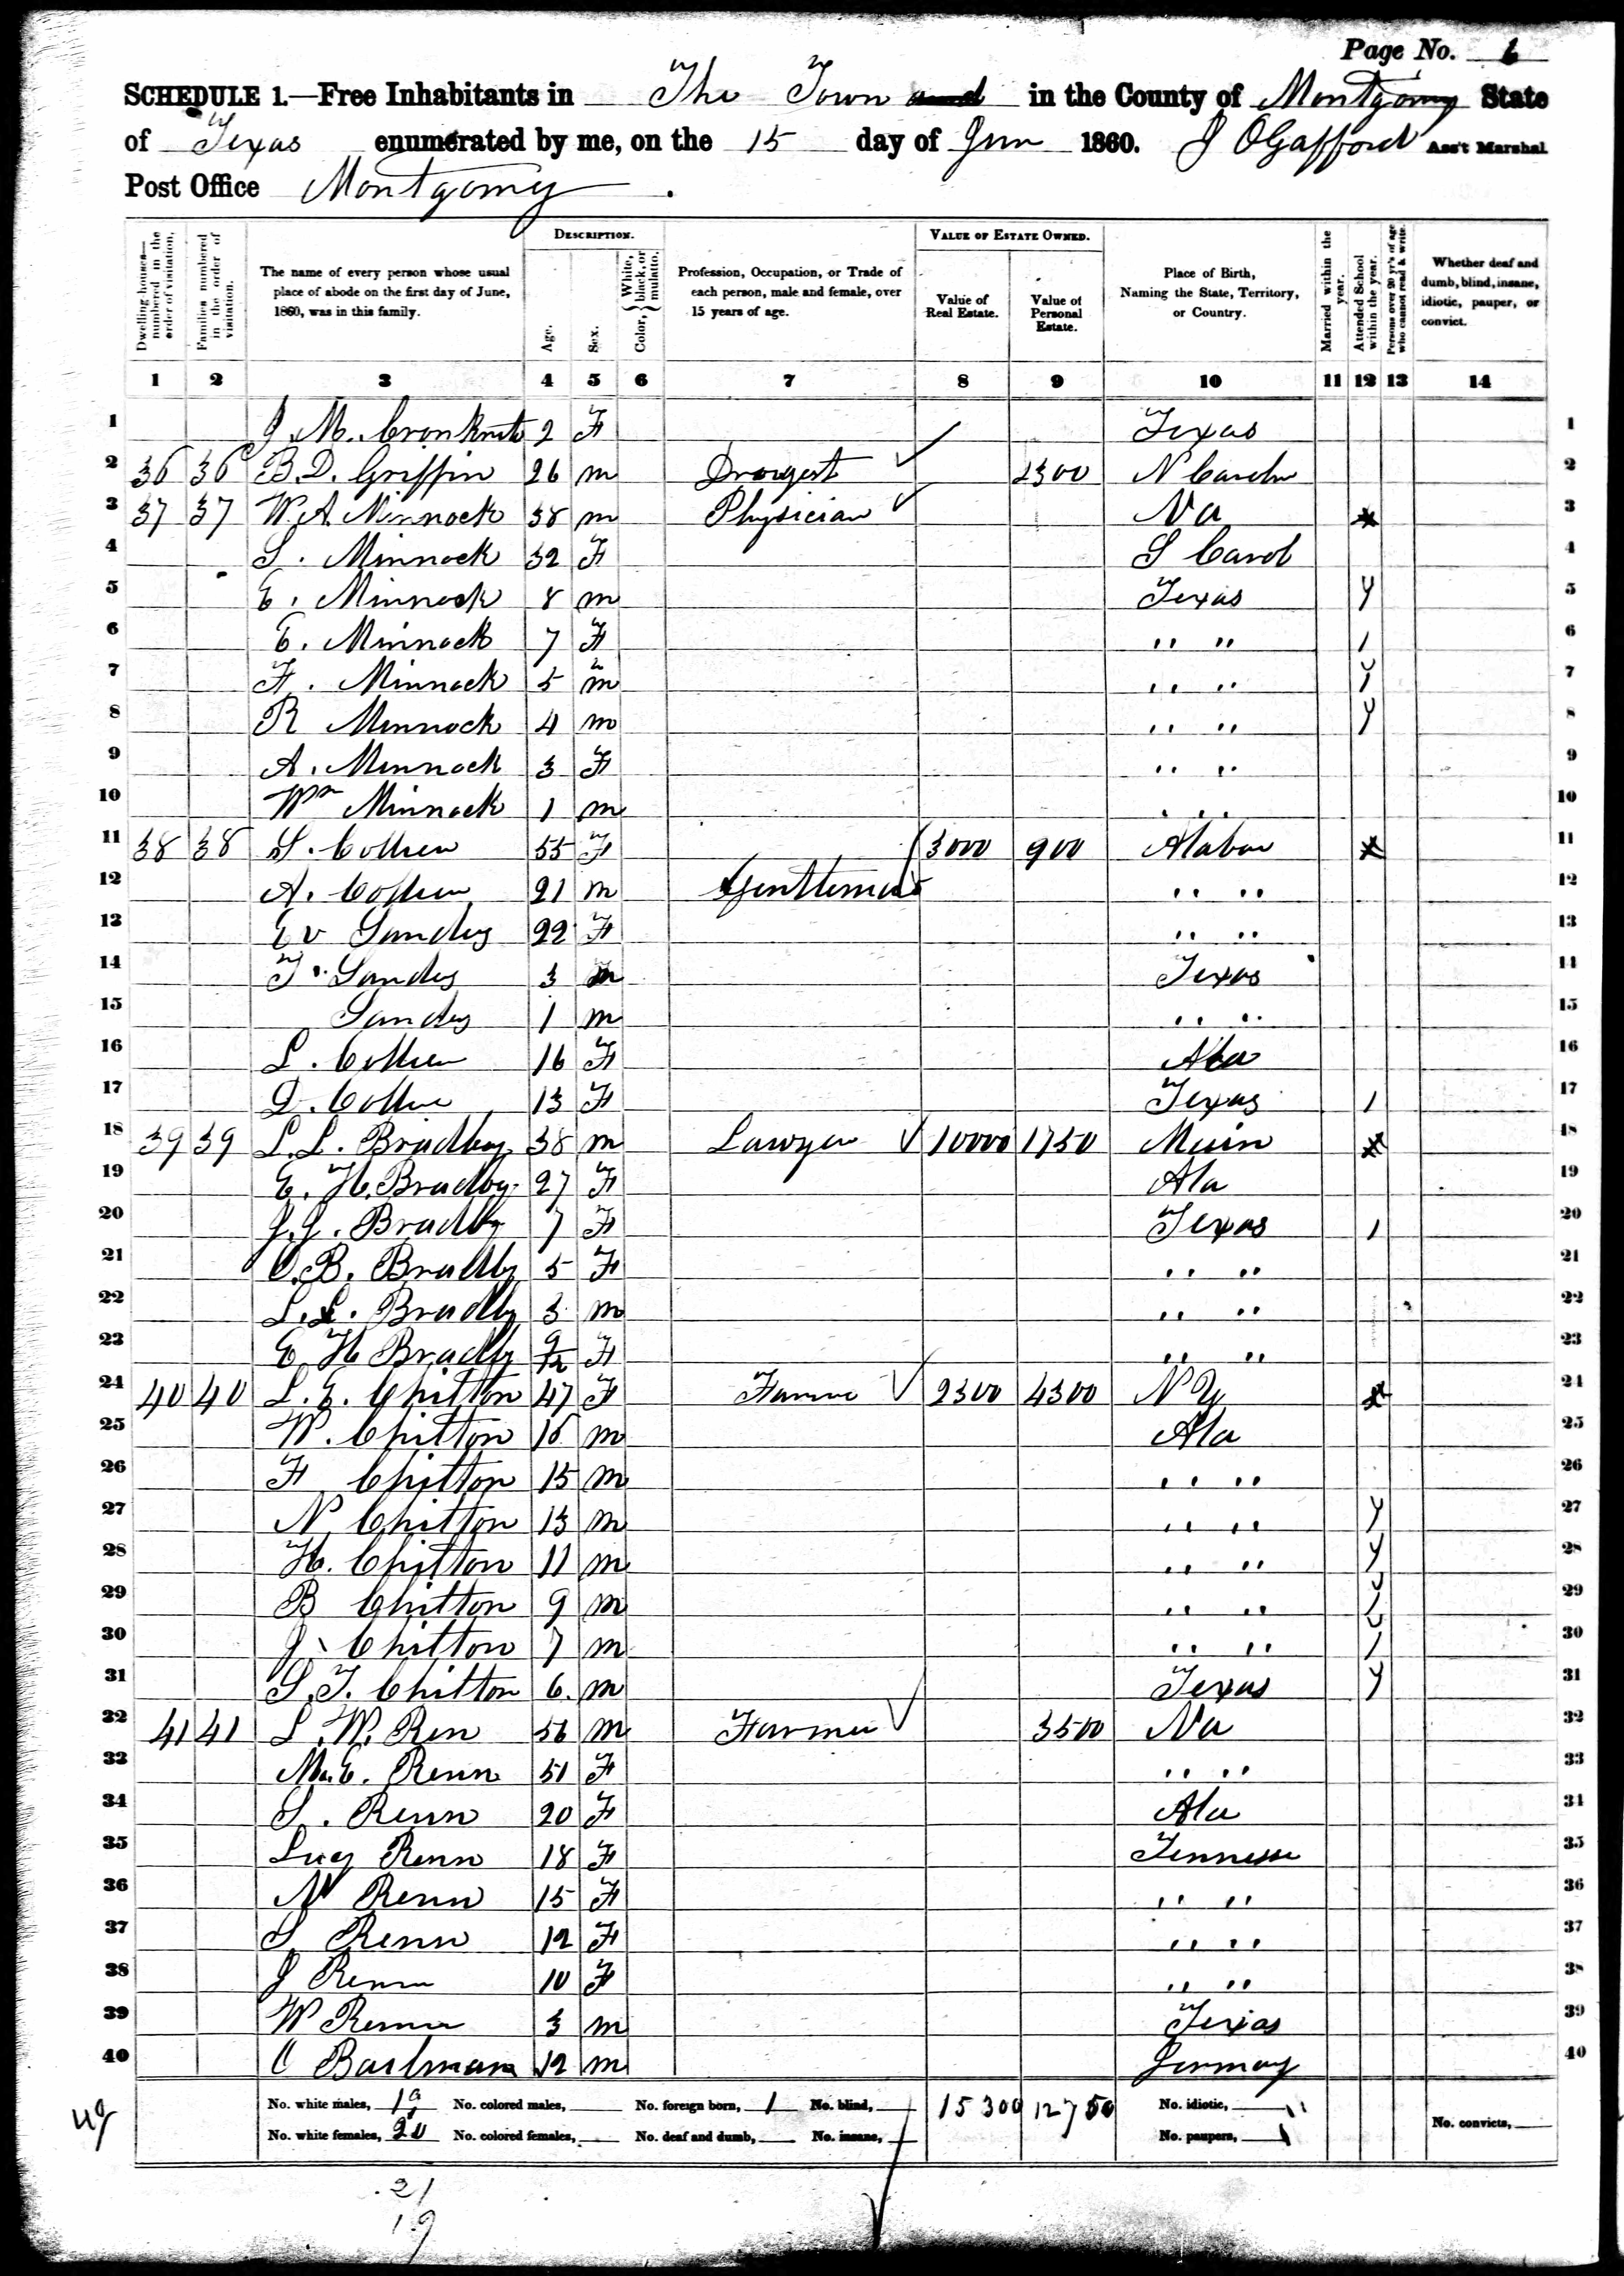 Page No. 6
SCHEDULE 1.—Free Inhabitants in The Town and in the County of Montgomy State
of Texas enumerated by me, on the 15 day of Jun 1860. J O Gafford Ass't Marshal
Post Office Montgomy.
Dwelling-houses—numbered in the order of visitation.
Families numbered in the order of visitation.
The name of every person whose usual place of abode on the first day of June, 1860, was in this family.
DESCRIPTION.
Age.
Sex.
Color, { White, black, or mulatto.
Profession, Occupation, or Trade of each person, male and female, over 15 years of age.
VALUE OF ESTATE OWNED.
Value of Real Estate.
Value of Personal Estate.
Place of Birth, Naming the State, Territory, or Country.
Married within the year.
Attended School within the year.
Persons over 20 yr's of age who cannot read & write.
Whether deaf and dumb, blind, insane, idiotic, pauper, or convict.
1 2 3 4 5 6 7 8 9 10 11 12 13 14
1 J. M. 2 F Texas 1
2 36 36 B. D. Griffin 26 m 2300 N 2
3 37 37 W. A. Minnock 38 m Physician Va 3
4 S. Minnock 32 F S Carol 4
5 E. Minnock 8 m Texas 5
6 E. Minnock 7 F " " 1 6
7 F. Minnock 5 m " " 7
8 R Minnock 4 m " " 8
9 A. Minnock 3 F " " 9
10 Wm Minnock 1 m " " 10
11 38 38 S. 55 F 3000 900 Alabam 11
12 A. 21 m Gentleman " " 12
13 E v Sandes 22 F " " 13
14 T. Sandes 3 m Texas 14
15 Sandes 1 m " " 15
16 L. 16 F Ala 16
17 D. 13 F Texas 1 17
18 39 39 L. L. Bradby 38 m Lawyer 10000 1750 18
19 E. H. Bradby 27 F Ala 19
20 J. J. Bradby 7 F Texas 1 20
21 O. B. Bradby 5 F " " 21
22 L. L. Bradby 3 m " " 22
23 E H Bradby 9/12 F " " 23
24 40 40 L. E. Chitton 47 F 2300 4300 N Y 24
25 W. Chitton 16 m Ala 25
26 F Chitton 15 m " " 26
27 N Chitton 13 m " " 27
28 H. Chitton 11 m " " 28
29 B Chitton 9 m " " 29
30 J. Chitton 7 m " " 30
31 S. T. Chitton 6. m Texas 31
32 41 41 L. W. Ren 56 m Farmer 3500 Va 32
33 M. E. Renn 51 F " " 33
34 S. Renn 20 F Ala 34
35 Lucy Renn 18 F Tennesse 35
36 N Renn 15 F " " 36
37 S Renn 12 F " " 37
38 J Renn 10 F " " 38
39 W Renn 3 m Texas 39
40 C 12 m Germany 40
No. white males, 19 No. colored males, No. foreign born, 1 No. blind, 15 300 12750 No. idiotic,
No. white females, 20 No. colored females, No. deaf and dumb, No. insane, No. paupers, No. convicts,
21
19